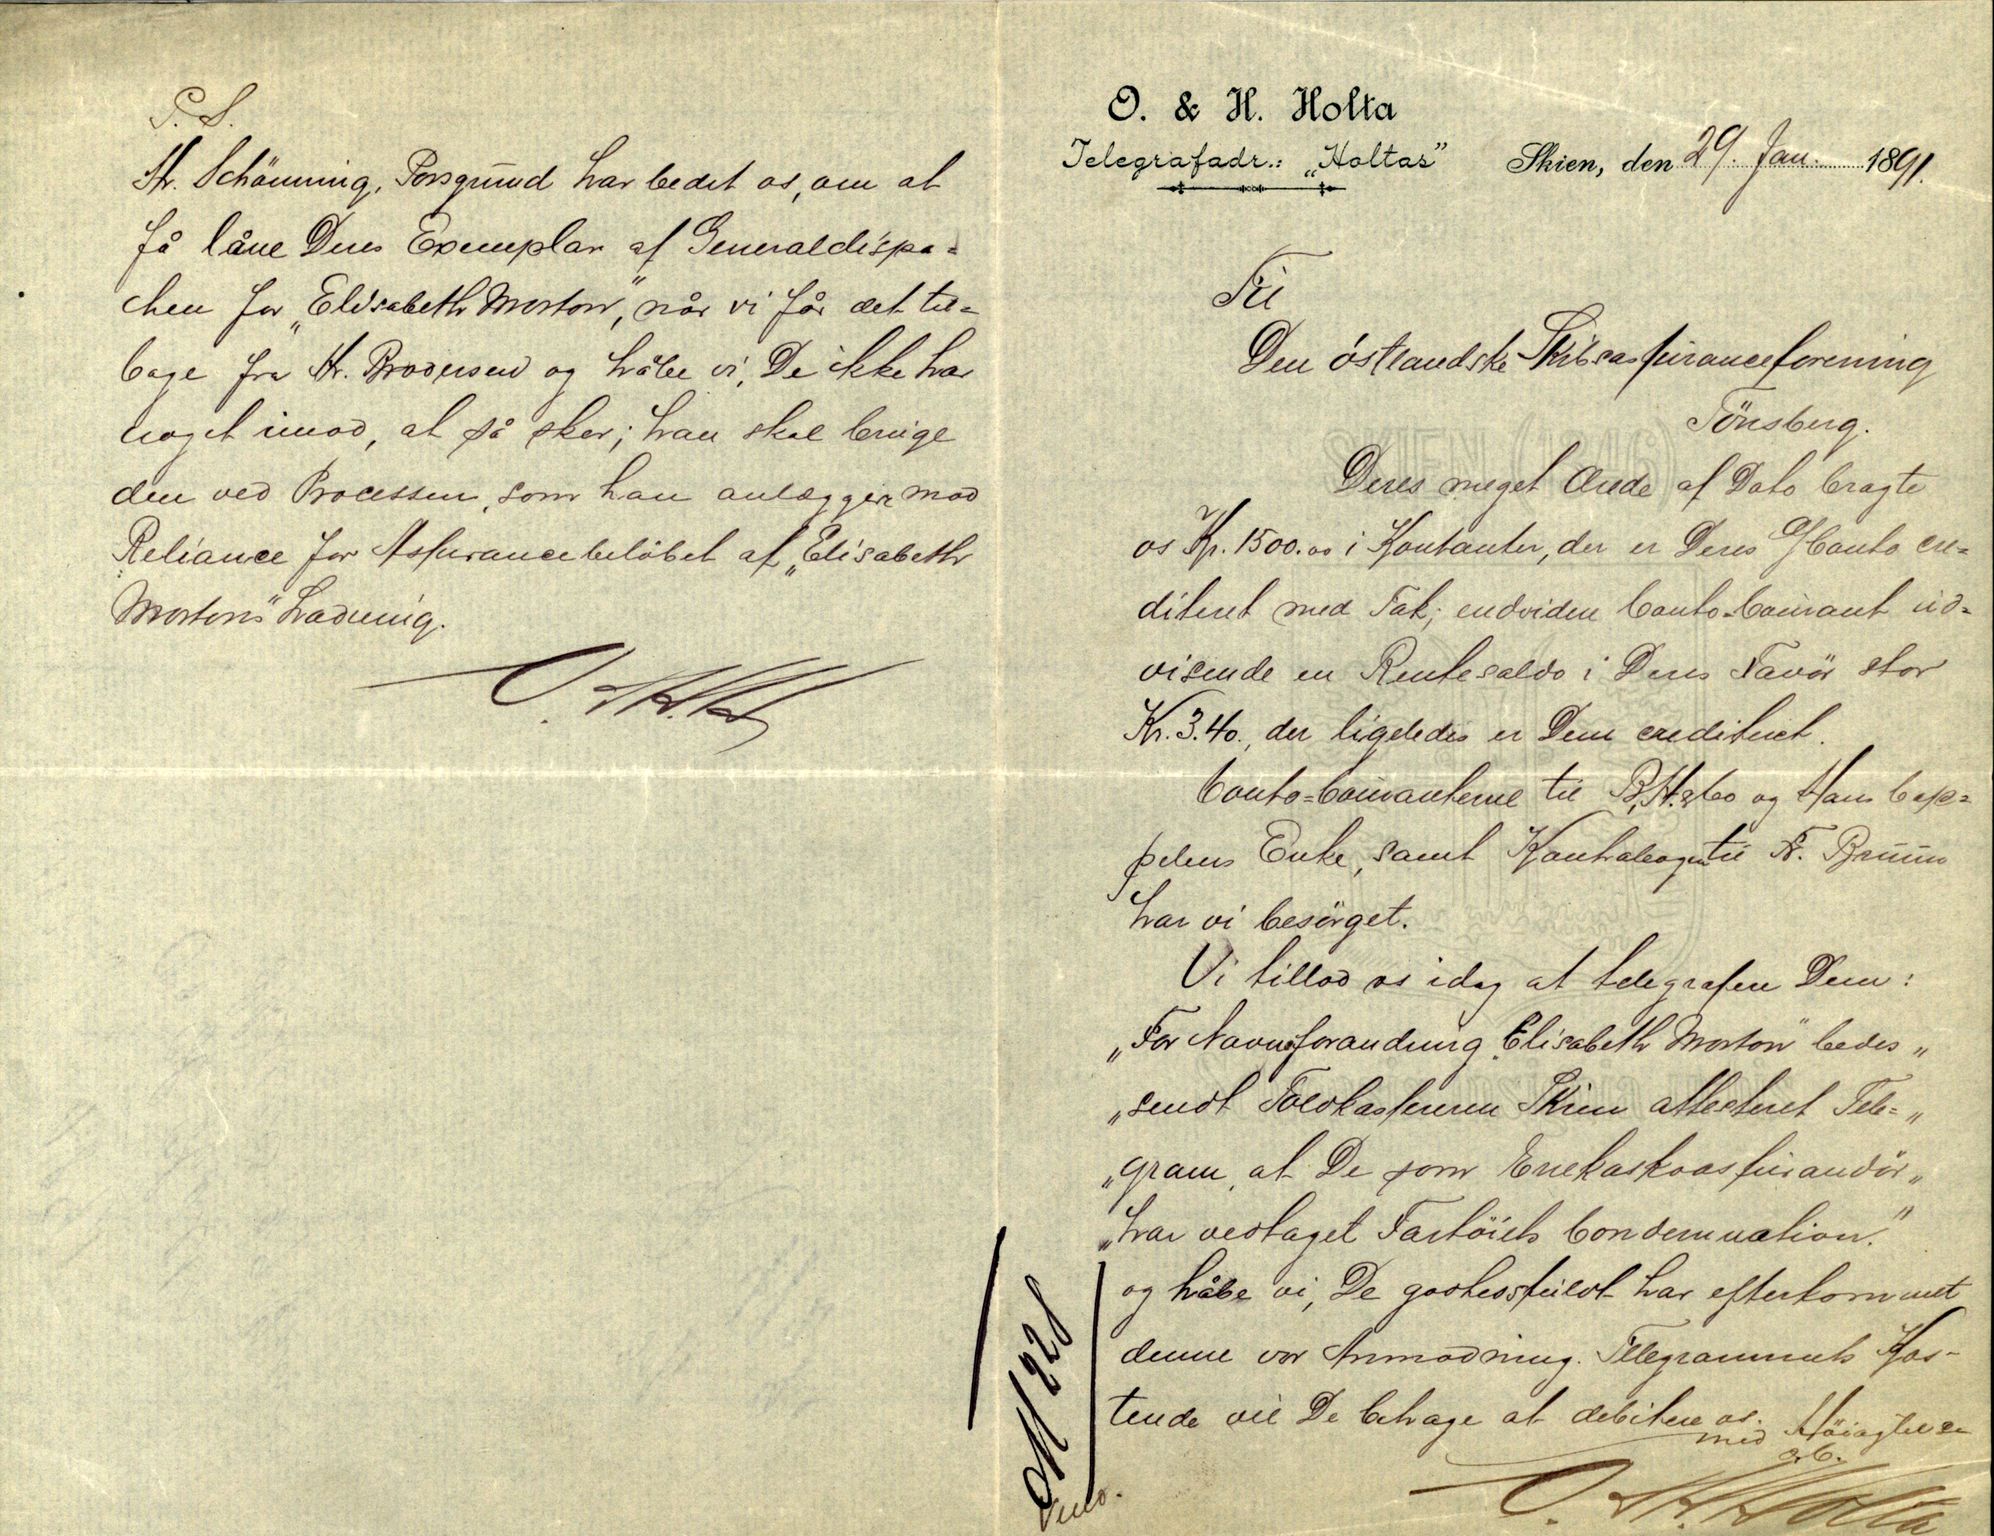 O. & H. Holta
Telegrafadr.: „Holtas”
Skien, den 29. Jan. 1891.
Til
Den östlandske Skibsassuranceforening
Tönsberg.
Deres meget Ærede af Dato bragte
os Kr. 1500.00 i Kontanter, der er Deres Conto cre=
diteret med Tak; endvidere Conto-Courant ud=
visende en Rentesaldo i Deres Favör stor
Kr. 3.40., der ligeledes er Dem crediteret.
Conto=Couranterne til B, H. & Co og Hans Cap=
pelens Enke, samt Kontrabogen til Fr. Bruun
har vi besörget.
Vi tillod os idag at telegrafere Dem:
„For Navneforandring „Elisabeth Morton” bedes„
„sendt Toldkassereren Skien attesteret Tele=„
„gram, at De som Enekaskoassurandör„
„har vedtaget Fartöiets Condemnation.”
og håbe vi, De godhedsfuldt har efterkommet
denne vor Anmodning. Telegrammets Kos-
tende vil De behage at debitere os.
med Höiagtelse
O. H. Holta
P. S.
Hr. Schönning, Porsgrund har bedet os, om at
få låne Deres Exemplar af Generaldispa=
chen for „Elisabeth Morton”, når vi får det til=
bage fra Hr. Brodersen og håbe vi, De ikke har
noget imod, at så sker; han skal bruge
den ved Processen, som han anlægger mod
Reliance for Assurancebelöbet af „Elisabeth
Mortons” Ladning.